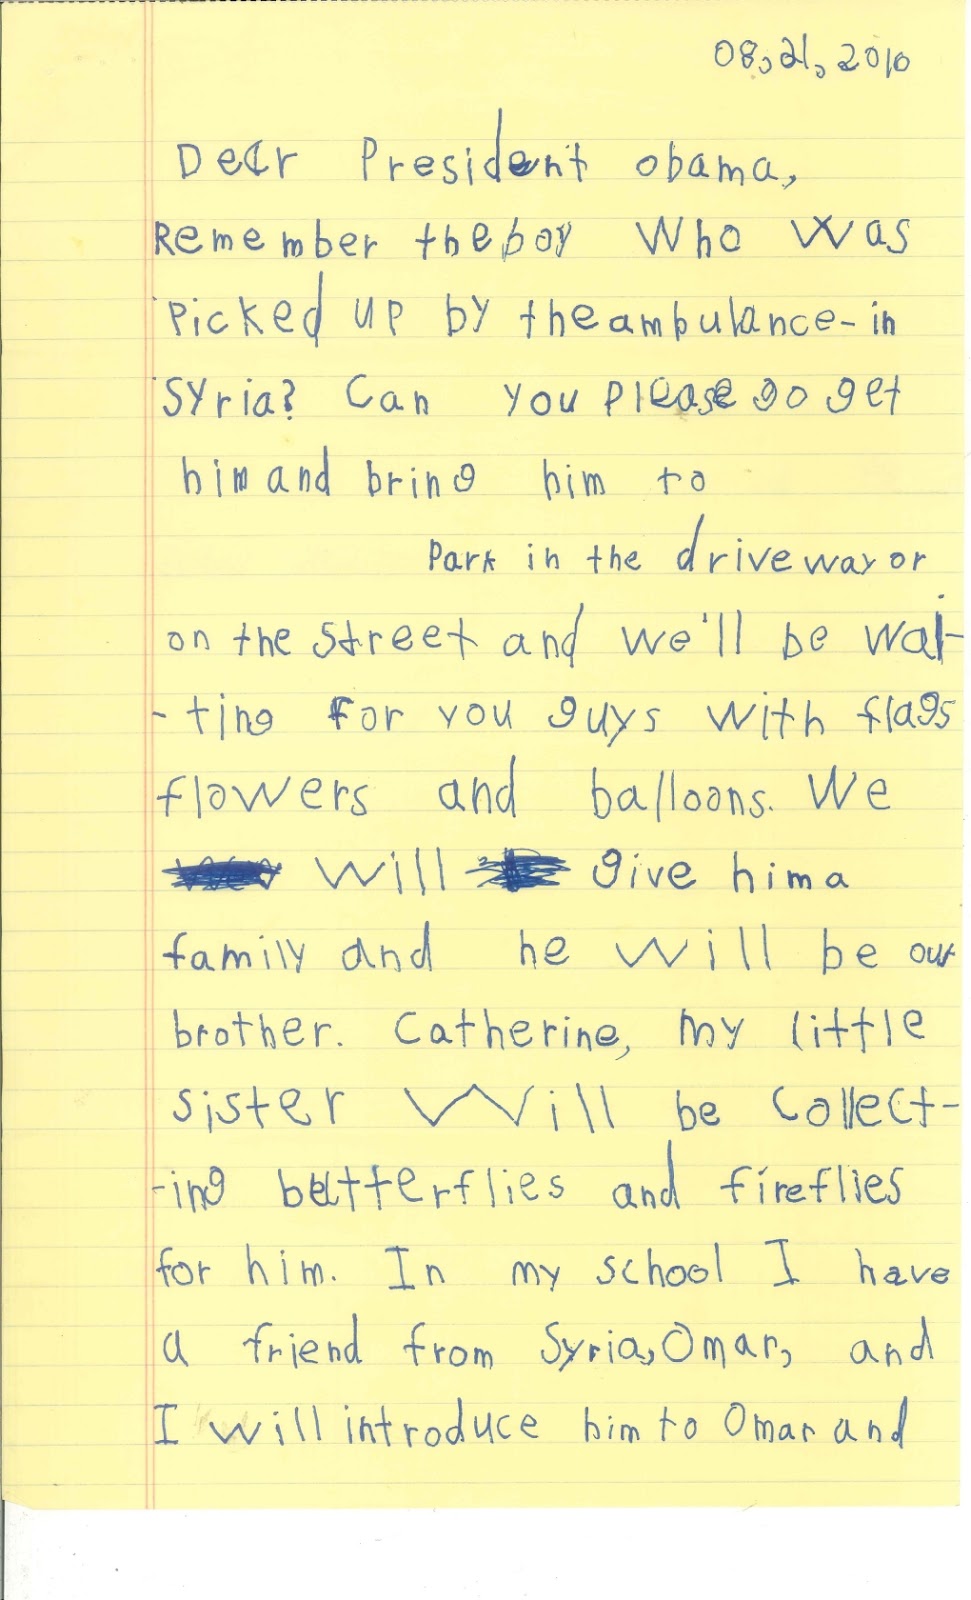 08, 21, 2010
Dear President obama,
Remember the boy Who Was
Picked up by the ambulance-in
Syria? Can you please go get
him and bring him to
Park in the driveway or
on the street and we'll be wai-
-ting for you guys with flags
flowers and balloons. We
will give him a
family and he will be our
brother. Catherine, my little
sister will be collect-
-ing butterflies and fireflies
for him. In my school I have
a friend from Syria, Omar, and
I will introduce him to Omar and